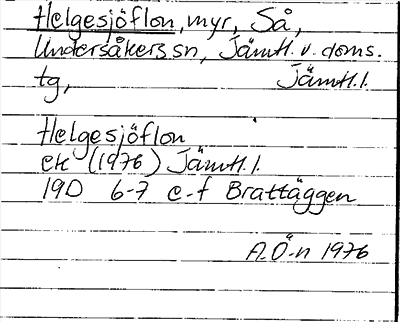 Helgesjöflon, myr, Så,
Undersåkers sn, Jämtl. v. doms.
tg, Jämtl. l.
Helgesjöflon
ek (1976) Jämtl. l.
19D 6-7 e-f Brattäggen
A.Ö-n 1976